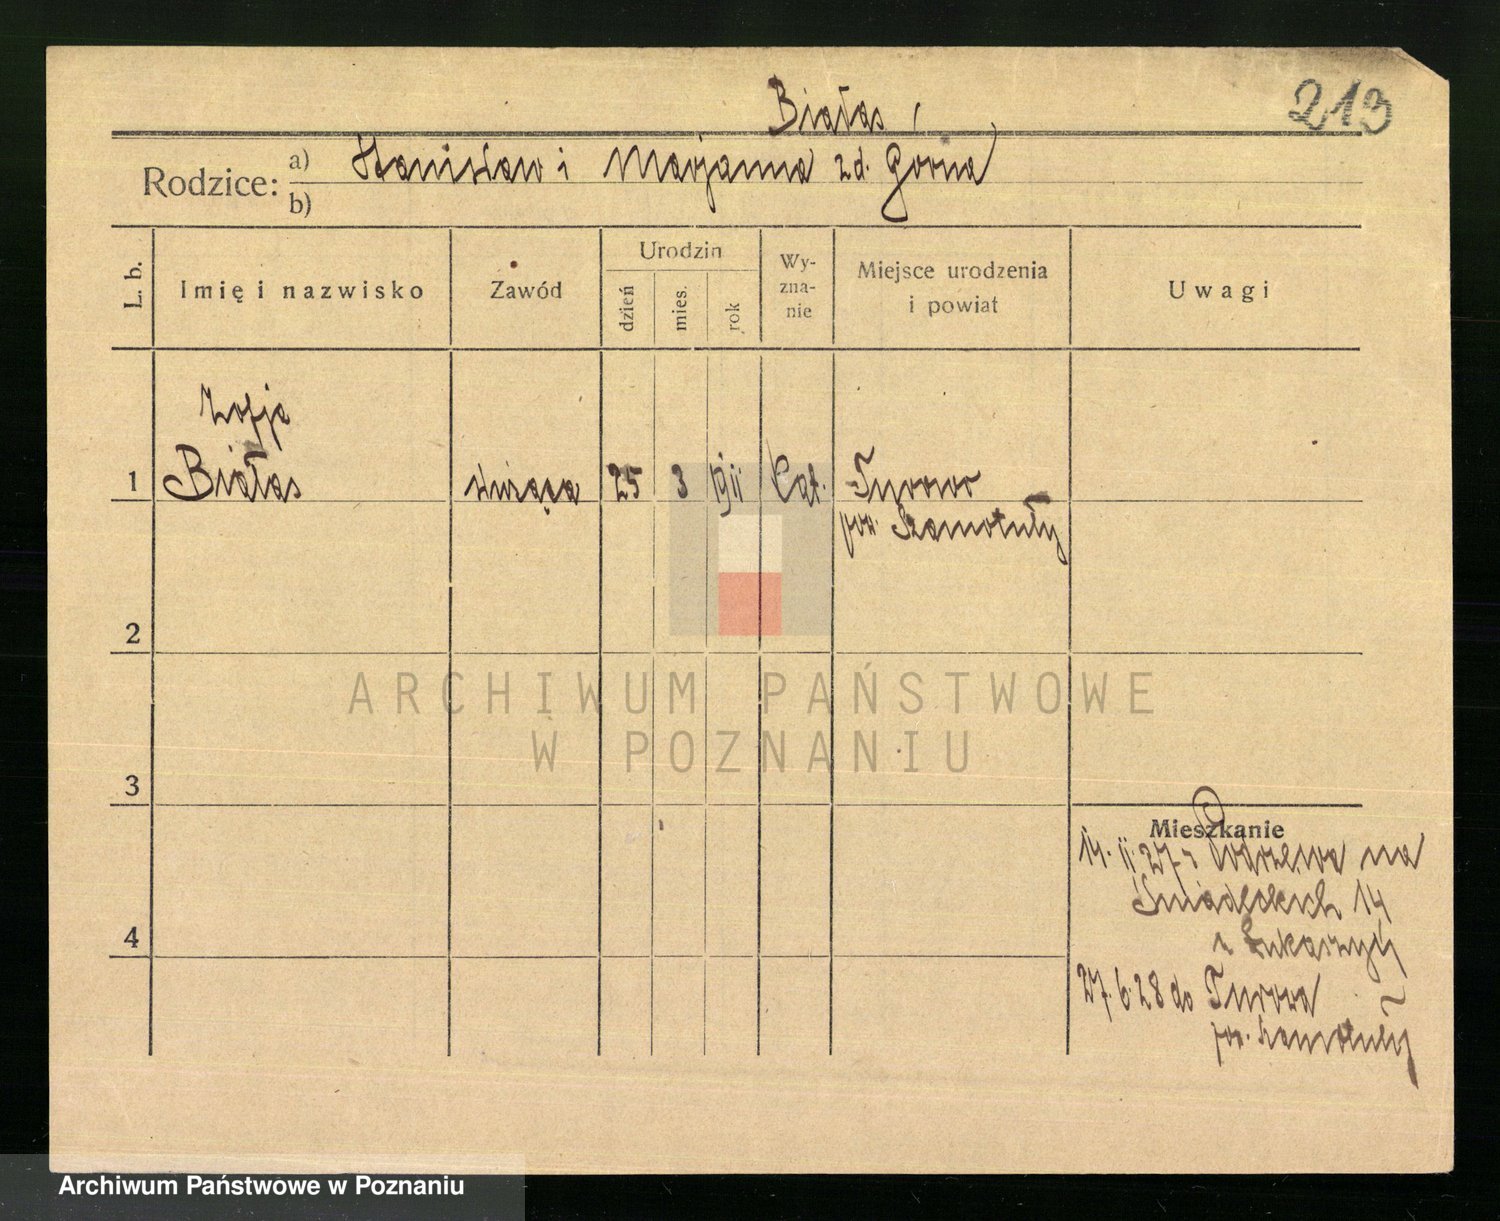 213
Białas
Rodzice: a) Stanisław i Marjanna zd. Górna
b)
L. b.
Imię i nazwisko
Zawód
Urodzin
dzień
mies.
rok
Wy-
zna-
nie
Miejsce urodzenia
i powiat
Uwagi
Zofja
1 Białas służąca 25 3 1911 Cat. Turowo
pow. Szamotuły
2
3
4
Mieszkanie
na
Śniadeckich 14
27.6.28 do Turowa
pow. Szamotuły
ARCHIWUM PAŃSTWOWE
W POZNANIU
Archiwum Państwowe w Poznaniu